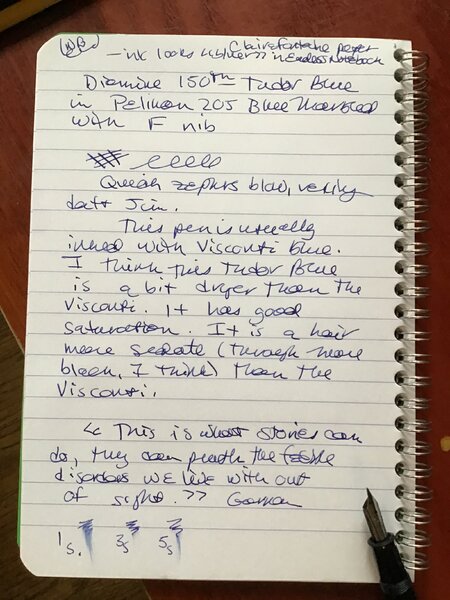 NB
Clairefontaine paper
— ink looks in Endless Notebook
Diamine 150th Tudor Blue
in Pelikan 205 Blue Marbled
with F nib
Quick zephyrs blow, vexing
daft Jim.
This pen is usually
inked with Visconti Blue.
I think this Tudor Blue
is a bit dryer than the
Visconti. It has good
saturation. It is a hair
more sedate (through more
black, I think) than the
Visconti.
<< This is what stories can
do, they can push the
disorders we live with out
of sight. >>
1s. 3s 5s